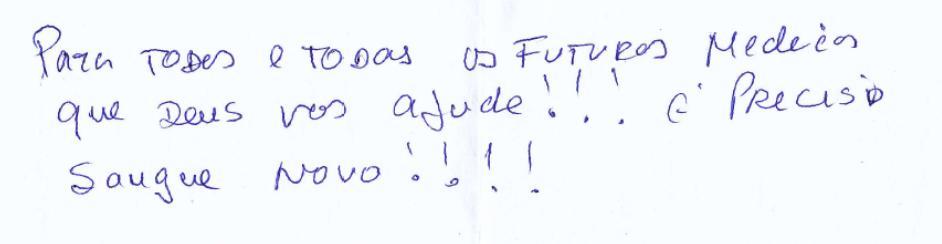 Para TODOS e TODAS os FUTUROS Medicos
que DEUS vos ajude!!! É PRECISO
Sangue NOVO!!!!